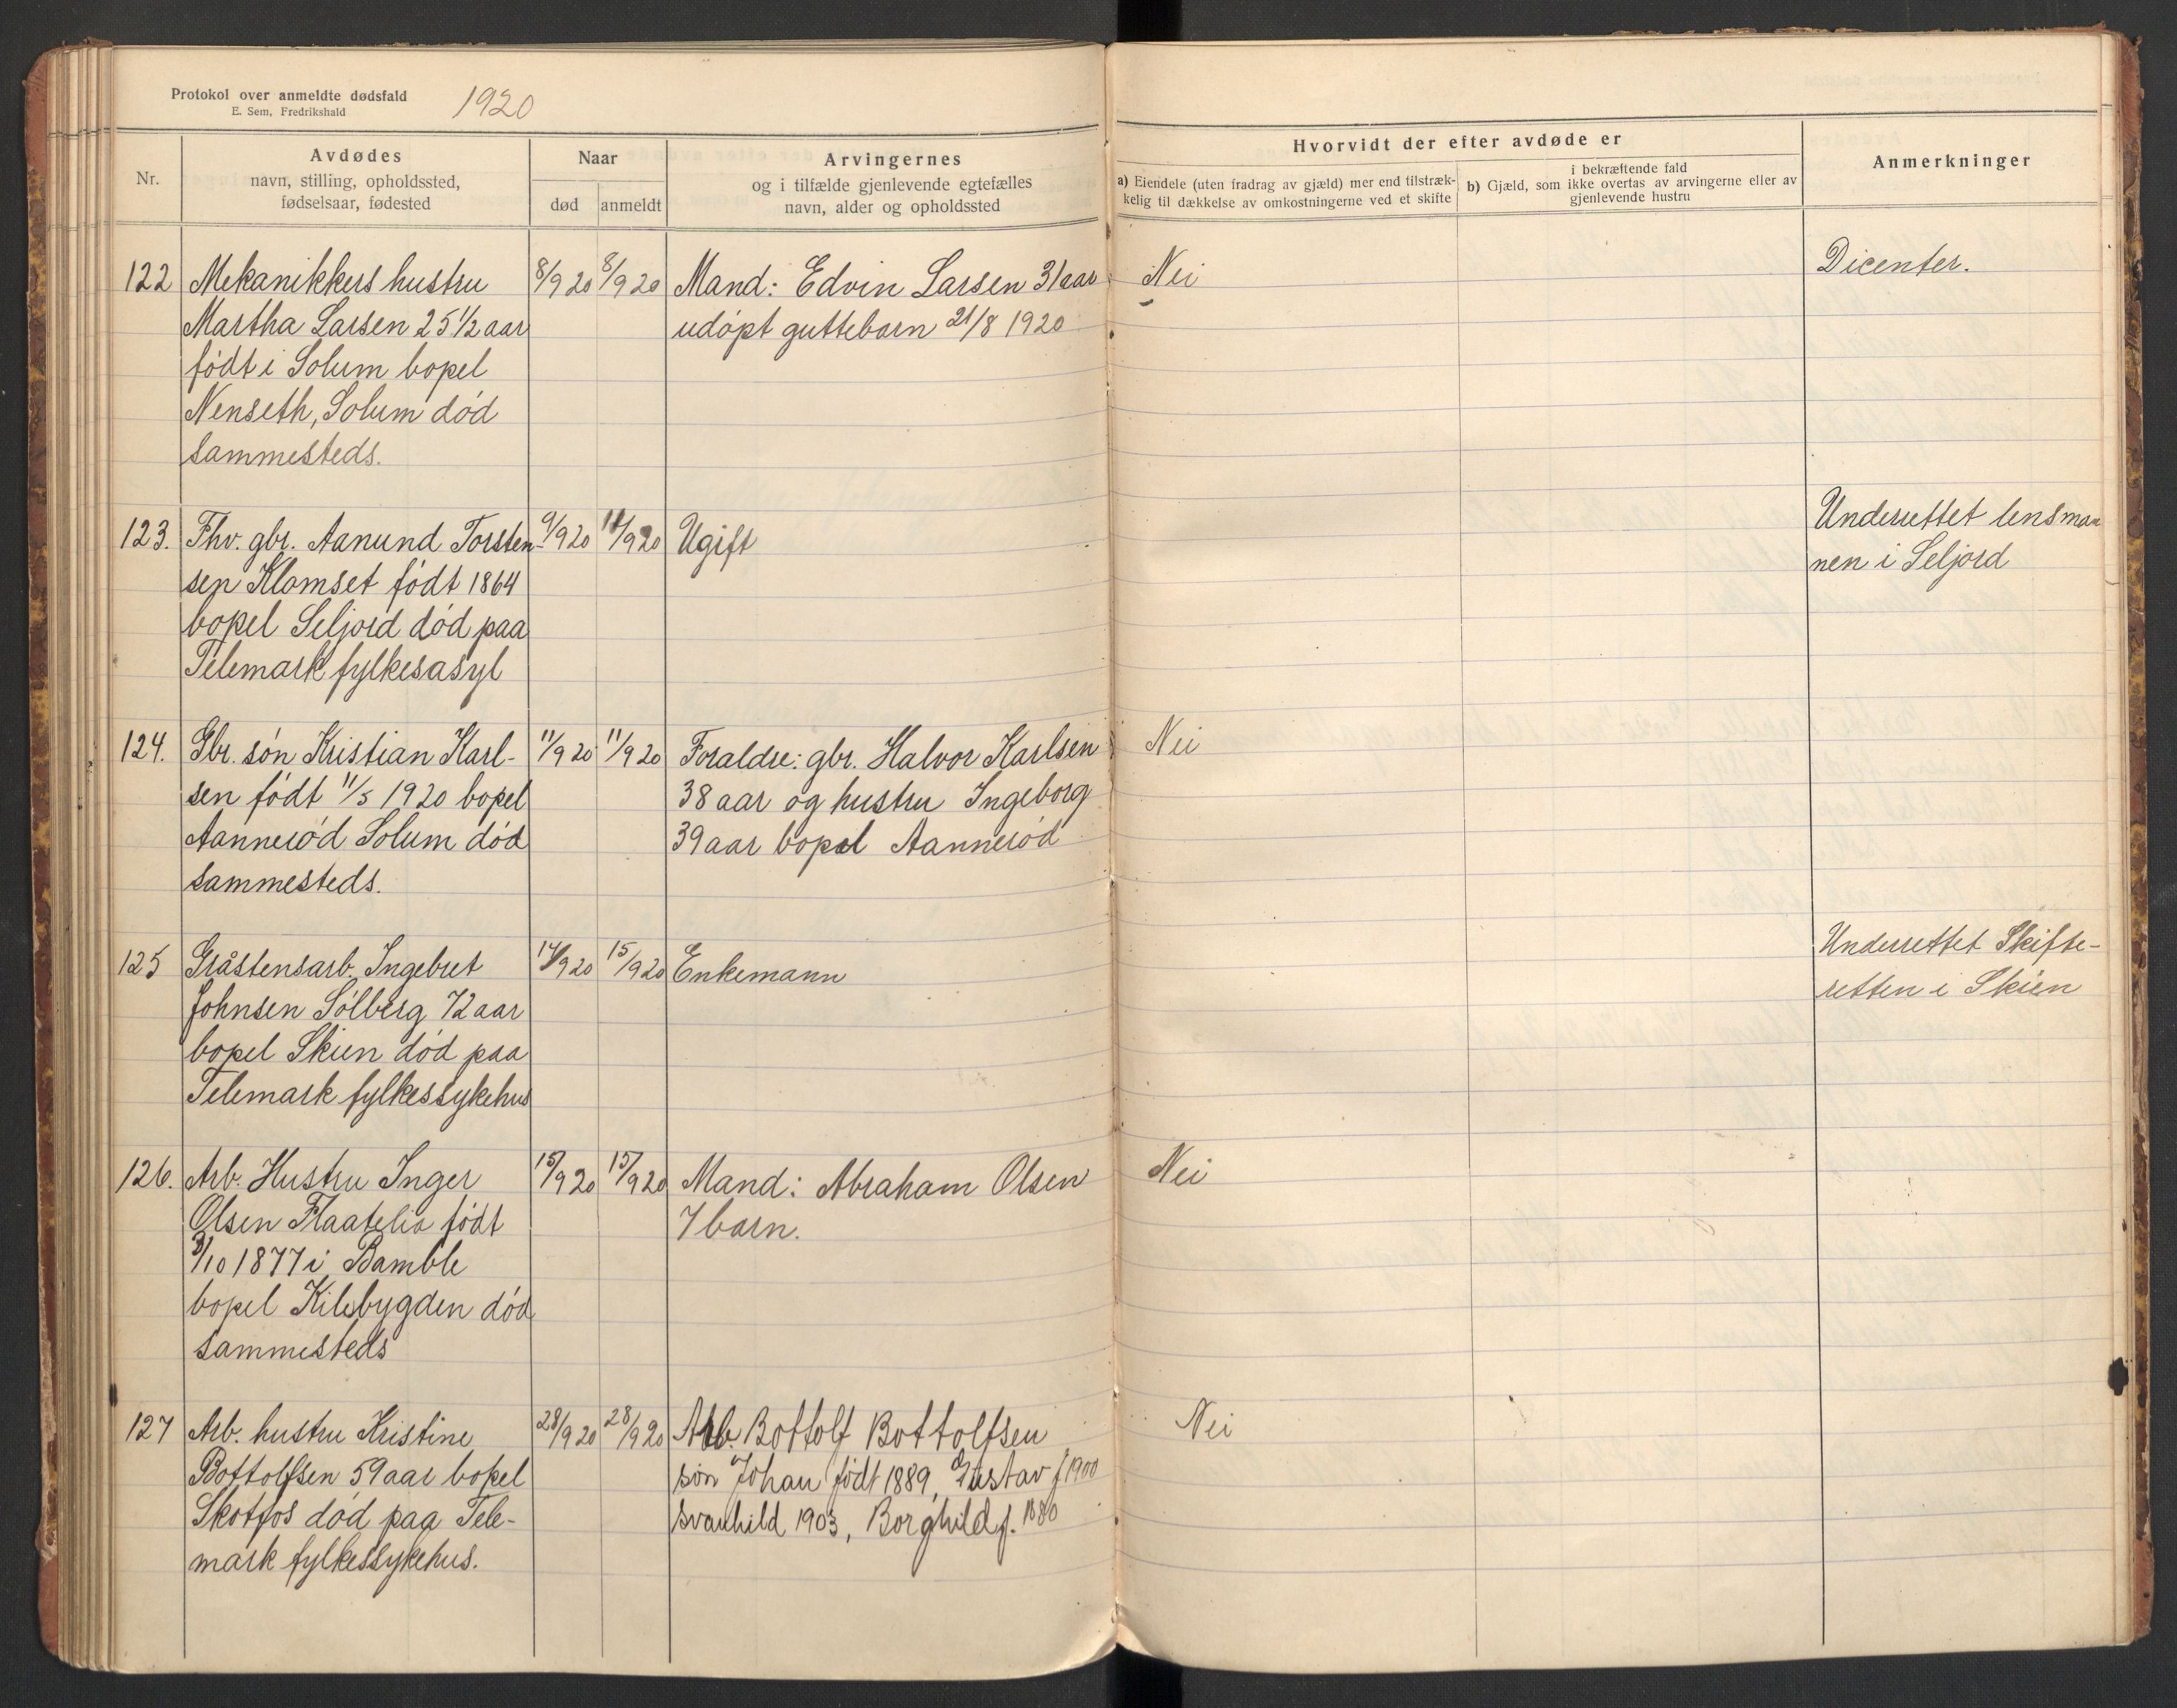 Protokol over anmeldte dødsfald
E. Sem, Fredrikshald
1920
Nr.
Avdødes
navn, stilling, opholdssted,
fødselsaar, fødested
Naar
død
anmeldt
Arvingernes
og i tilfælde gjenlevende egtefælles
navn, alder og opholdssted
Hvorvidt der efter avdøde er
a) Eiendele (uten fradrag av gjæld) mer end tilstræk-
kelig til dækkelse av omkostningerne ved et skifte
i bekræftende fald
b) Gjæld, som ikke overtas av arvingerne eller av
gjenlevende hustru
Anmerkninger
122
Mekanikkers hustru
Martha Larsen 25 1/2 aar
født i Solum bopel
Nenseth, Solum død
sammesteds.
8/9 20
8/9 20
Mand: Edvin Larsen 31 aar
udøpt guttebarn 21/8 1920
Nei
Dicenter.
123.
Fhv. gbr. Aanund Torsten-
sen Klomset født 1864
bopel Seljord død paa
Telemark fylkesasyl
9/9 20
11/9 20
Ugift
Underrettet lensman
nen i Seljord
124.
Gbr. søn Kristian Karl-
sen født 11/5 1920 bopel
Aannerød Solum død
sammesteds.
11/9 20
11/9 20
Foraldre: gbr. Halvor Karlsen
38 aar og hustru Ingeborg
39 aar bopel Aannerød
Nei
125
Gråstensarb. Ingebret
Johnsen Sølberg 72 aar
bopel Skien død paa
Telemark fylkessykehus
14/9 20
15/9 20
Enkemann
Underrettet Skifte-
retten i Skien
126.
Arb. Hustru Inger
Olsen Flaatelia født
3/10 1877 i Bamble
bopel Kilebygden død
sammesteds
15/9 20
15/9 20
Mand: Abraham Olsen
7 barn.
Nei
127
Arb. hustru Kristine
Bottolfsen 59 aar bopel
Skotfos død paa Tele-
mark fylkessykehus.
28/9 20
28/9 20
Arb. Bottolf Bottolfsen
søn Johan født 1889, Gustav f 1900
Svanhild 1903, Borghild f. 1880
Nei